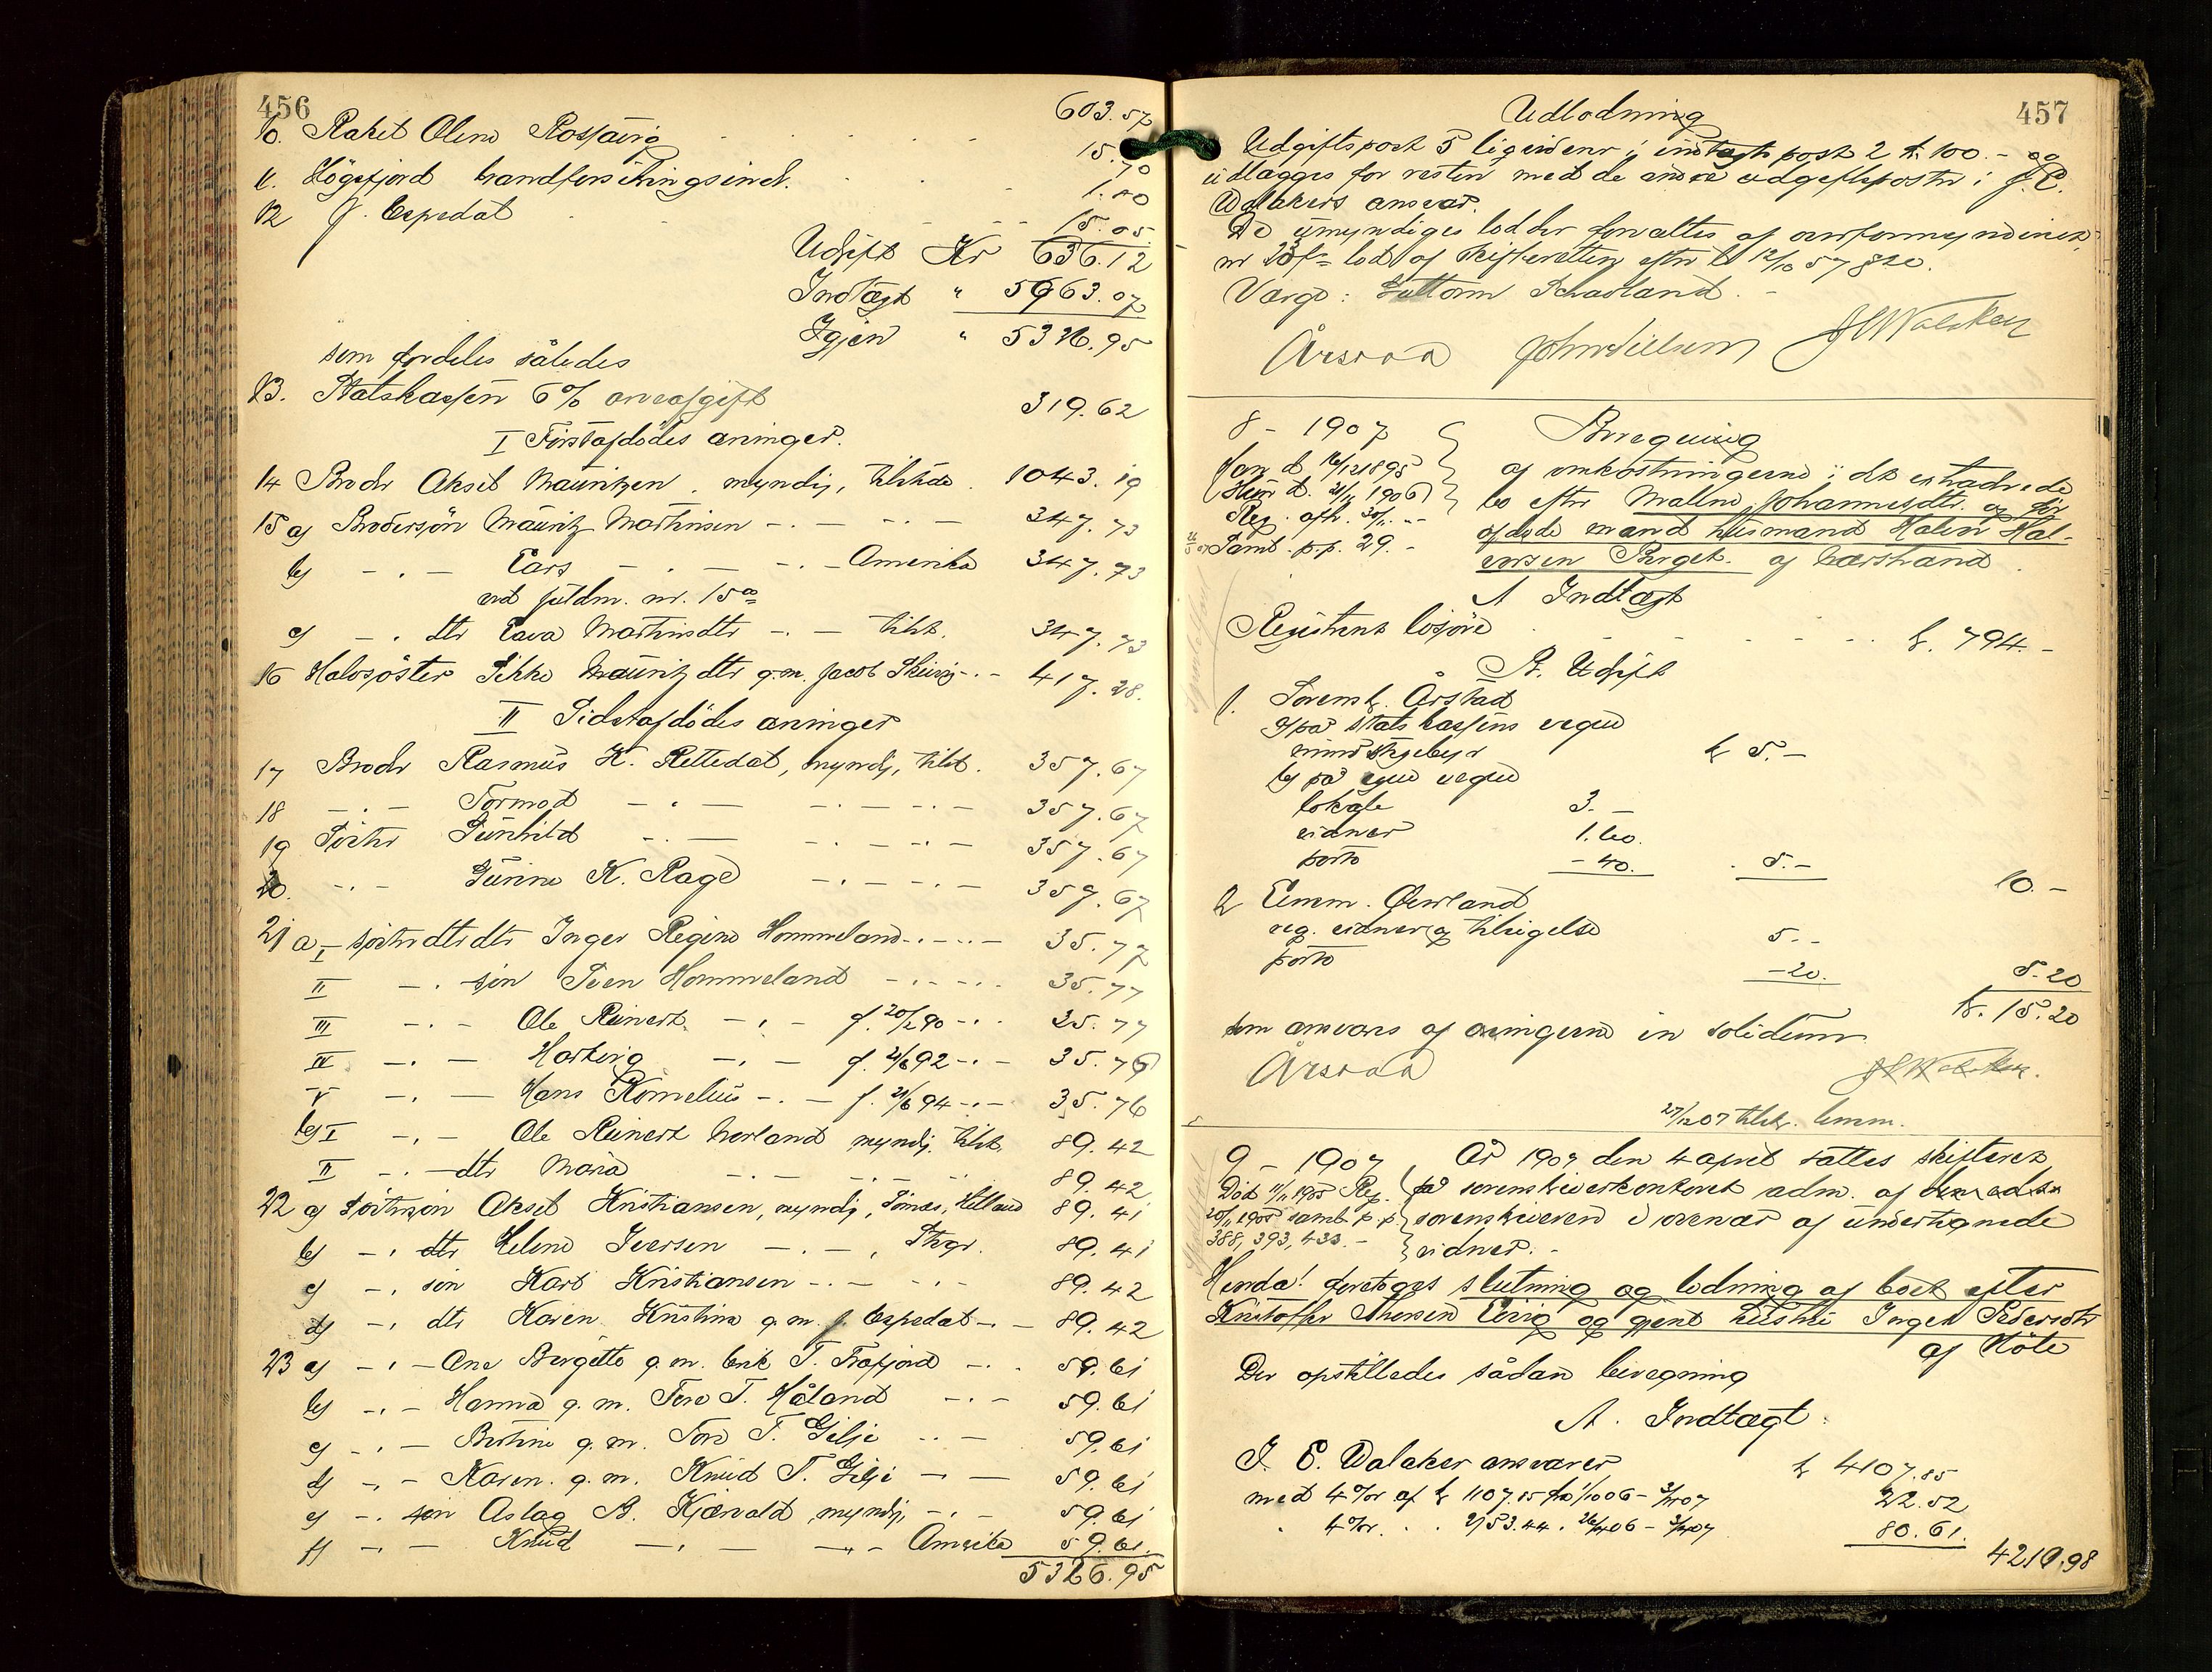 456
603.57
10. Rakel Oline Rossavig 15.70
11. Högsfjord brandforsikringsindr. 1.80
12 J. Espedal 15.05
Udgift Kr 636.12
Indtægt " 5963.07
Igjen " 5326.95
som fordeles således
13. Statskassen 6% arveafgift 319.62
I Førstafdödes arvinger.
14 Broder Aksel Mauritzen, myndig, tilstede 1043.19
15 a) Brodersön Mauritz Martinsen -.- -.- 347.73
b) -.- Lars -.- -.- Amerika 347.73
ved fuldm. nr. 15 a
c) -.- dtr Lava Martinsdtr -.- tilst. 347.73
16 Halvsöster Sikke Mauritzdtr g.m. Jacob Skivig -.- 417.28.
II Sidstafdödes arvinger
17 Broder Rasmus K. Rettedal, myndig, tilst. 357.67
18 -.- Tormod -.- -.- -.- 357.67
19 Söster Gunhild -.- -.- -.- 357.67
20. -.- Gurine K. Rage -.- -.- 357.67
21 a I - söstersdtrdtr Inger Regine Hommeland -.- 35.77
II -.- sön Sven Hommeland -.- 35.77
III -.- Ole Reinert -.- f. 20/2 90 -.- 35.77
IV -.- Hartvig -.- f. 21/6 92 -.- 35.76
V -.- Hans Kornelius -.- f. 21/6 94 -.- 35.76
b) I -.- Ole Reinert Nerland myndig, tilst. 89.42
II -.- dtr Maria -.- 89.42
22 a) Söstersön Aksel Kristiansen, myndig, Tönnes, Helland 89.41
b) -.- dtr Helene Iversen -.- , Stvgr. 89.41
c) -.- sön Karl Kristiansen -.- 89.42
d) -.- dtr Karen Kristine g.m. J. Espedal -.- 89.42
23 a) -.- Ane Bergitte g.m. Erik T. Frafjord -.- 59.61
b) -.- Hanna g.m. Tore T. Håland -.- 59.61
c) -.- Bertine g.m. Tore T. Gilje -.- 59.61
d) -.- Karen g.m. Knud T. Gilje -.- 59.61
e) -.- sön Aslag A. Kjærvold, myndig -.- 59.61
f) -.- Knud -.- -.- Amerika 59.61.
5326.95
457
Udlodning
Udgiftspost 5 ligviderer i indtægts post 2 k. 100.- og
udlægges for resten med de andre udgiftsposter i J. E.
Walakers ansvar.
De umyndiges lodder forvaltes af overformynderiet,
nr 23 f = lod af skifteretten efter
Værge: Guttorm Schadland.-
Årstad John Nilsen JEWalaker
8 - 1907
Beregning
af omkostningerne i det extraderede
bo efter Malene Johannesdtr. og för
afdøde mand husmand Halvor Hal-
vorsen Berget af Børstrand.
Man d. 16/12 1895
(Hun d. 21/11 1906)
Reg. afh. 30/11 -
Saml. p.p. 29.-
A Indtægt
Registreret lösöre k. 794.-
B. Udgift
1. Sorenskr. Årstad
a) på statskassens vegne
mindstegebyr k 5.-
b) på egne vegne
lokale 3.-
vidner 1.60.
porto -40. 5.-
10.-
2 Lmm. Överland
reg. vidner og tilsigelse 5.-
porto -20. 5.20
k. 15.20
som ansvares af arvingerne in solidum
Årstad JEWalaker.
27/12 07 tilst. lmm.
9 - 1907 År 1907 den 4 april sattes skifteret
på sorenskriverkontoret adm. af
sorenskriveren i overvær af undertegnede
vidner.-
Död 11/11 1905 Reg.
20/11 1905 saml. p.p.
388, 393, 433.-
Hændte! foretoges slutning og lodning af boet efter
Kristoffer Thorsen Eivig og gjenl. hustru Inger Pedersdtr
af Höle
Der opstilledes sådan beregning
A. Indtægt.
J. E. Walaker ansvarer k 4107.85
med 4% af k 1107.85 fra 1/10 06 - 3/4 07 22.52
" 4% " " 2153.44 " 26/4 06 - 3/4 07 80.61.
4210.98